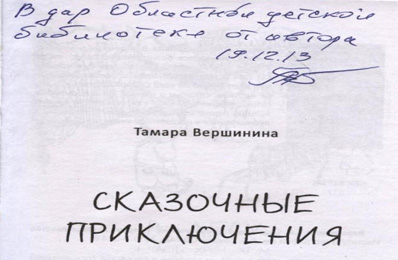 В дар Областной детской
библиотеке от автора
19.12.13
Тамара Вершинина
СКАЗОЧНЫЕ
ПРИКЛЮЧЕНИЯ